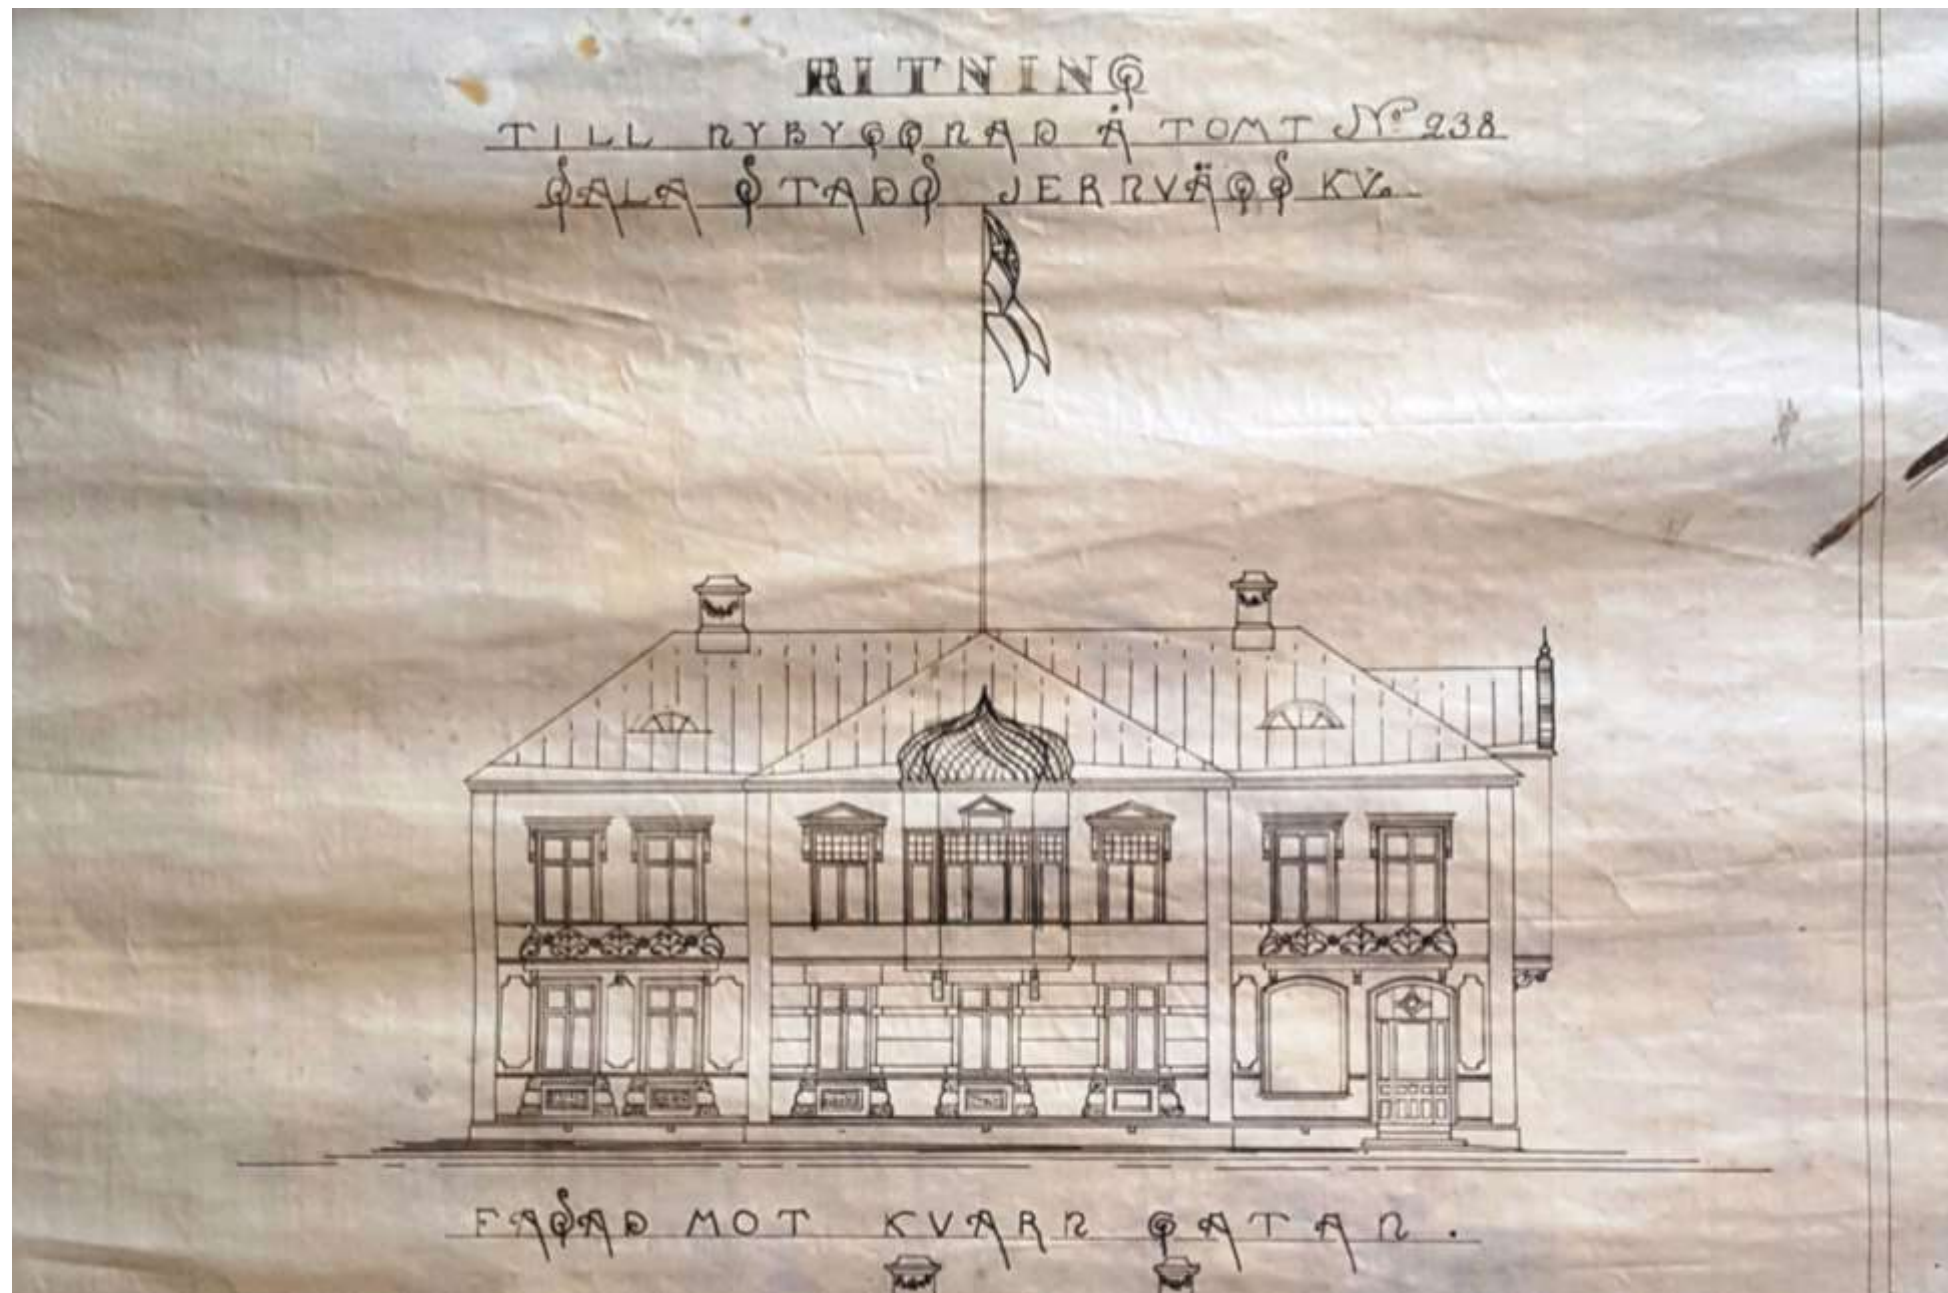 RITNING
TILL NYBYGGNAD Å TOMT No 238
SALA STADS JERNVÄGS KV.
FASAD MOT KVARN GATAN.